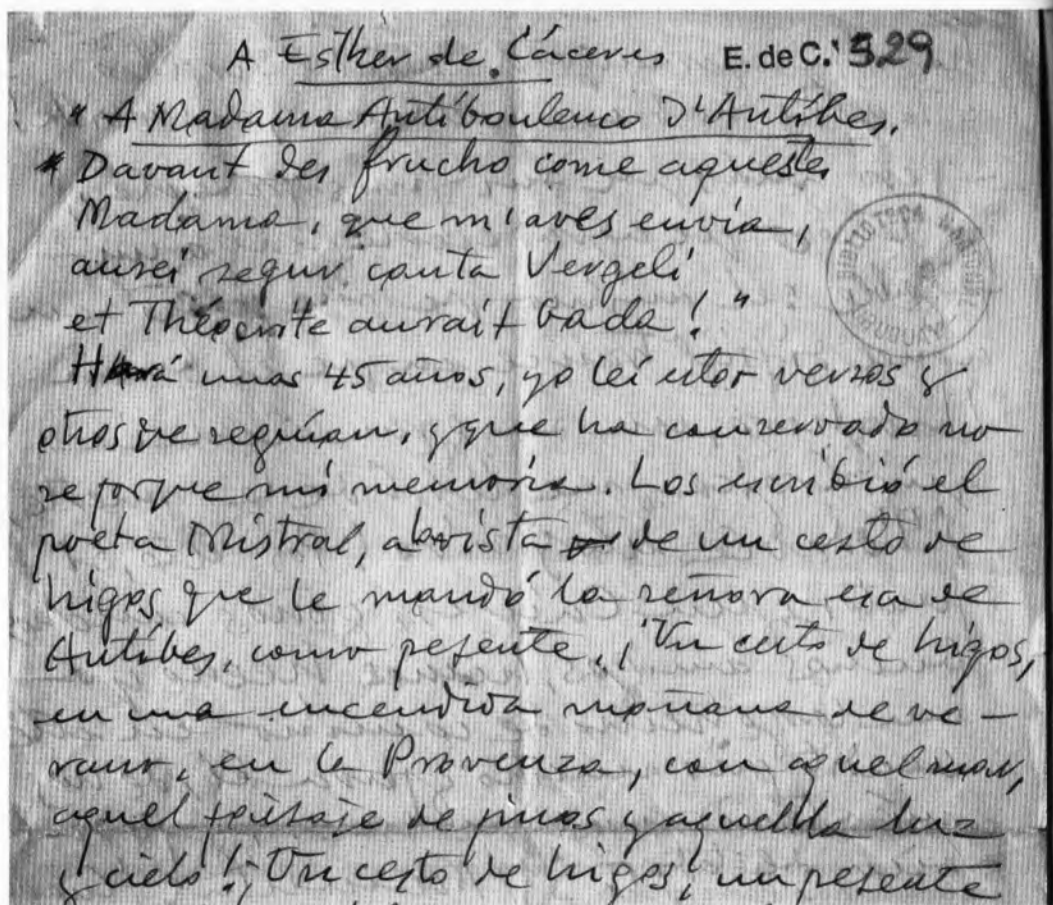 A Esther de Cáceres E. de C. 529
" A Madama Antíboulenco d'Antíbes.
" Davant des frucho come aquestes
Madama, que m'aves envia,
aurei segur canta Vergeli
et Théocrite aurait bada! "
Hará unas 45 años, yo leí estos versos y
otros que seguían, y que ha conservado no
se porque mi memoria. Los escribió el
poeta Mistral, a la vista de un cesto de
higos que le mandó la señora esa de
Antíbes, como pesente. ¡Un cesto de higos,
en una encendida mañana de ve-
rano, en la Provenza, con aquel mar,
aquel paisaje de pinos y aquella luz
y cielo! ¡Un cesto de higos; un pesente
BIBLIOTECA
URUGUAY